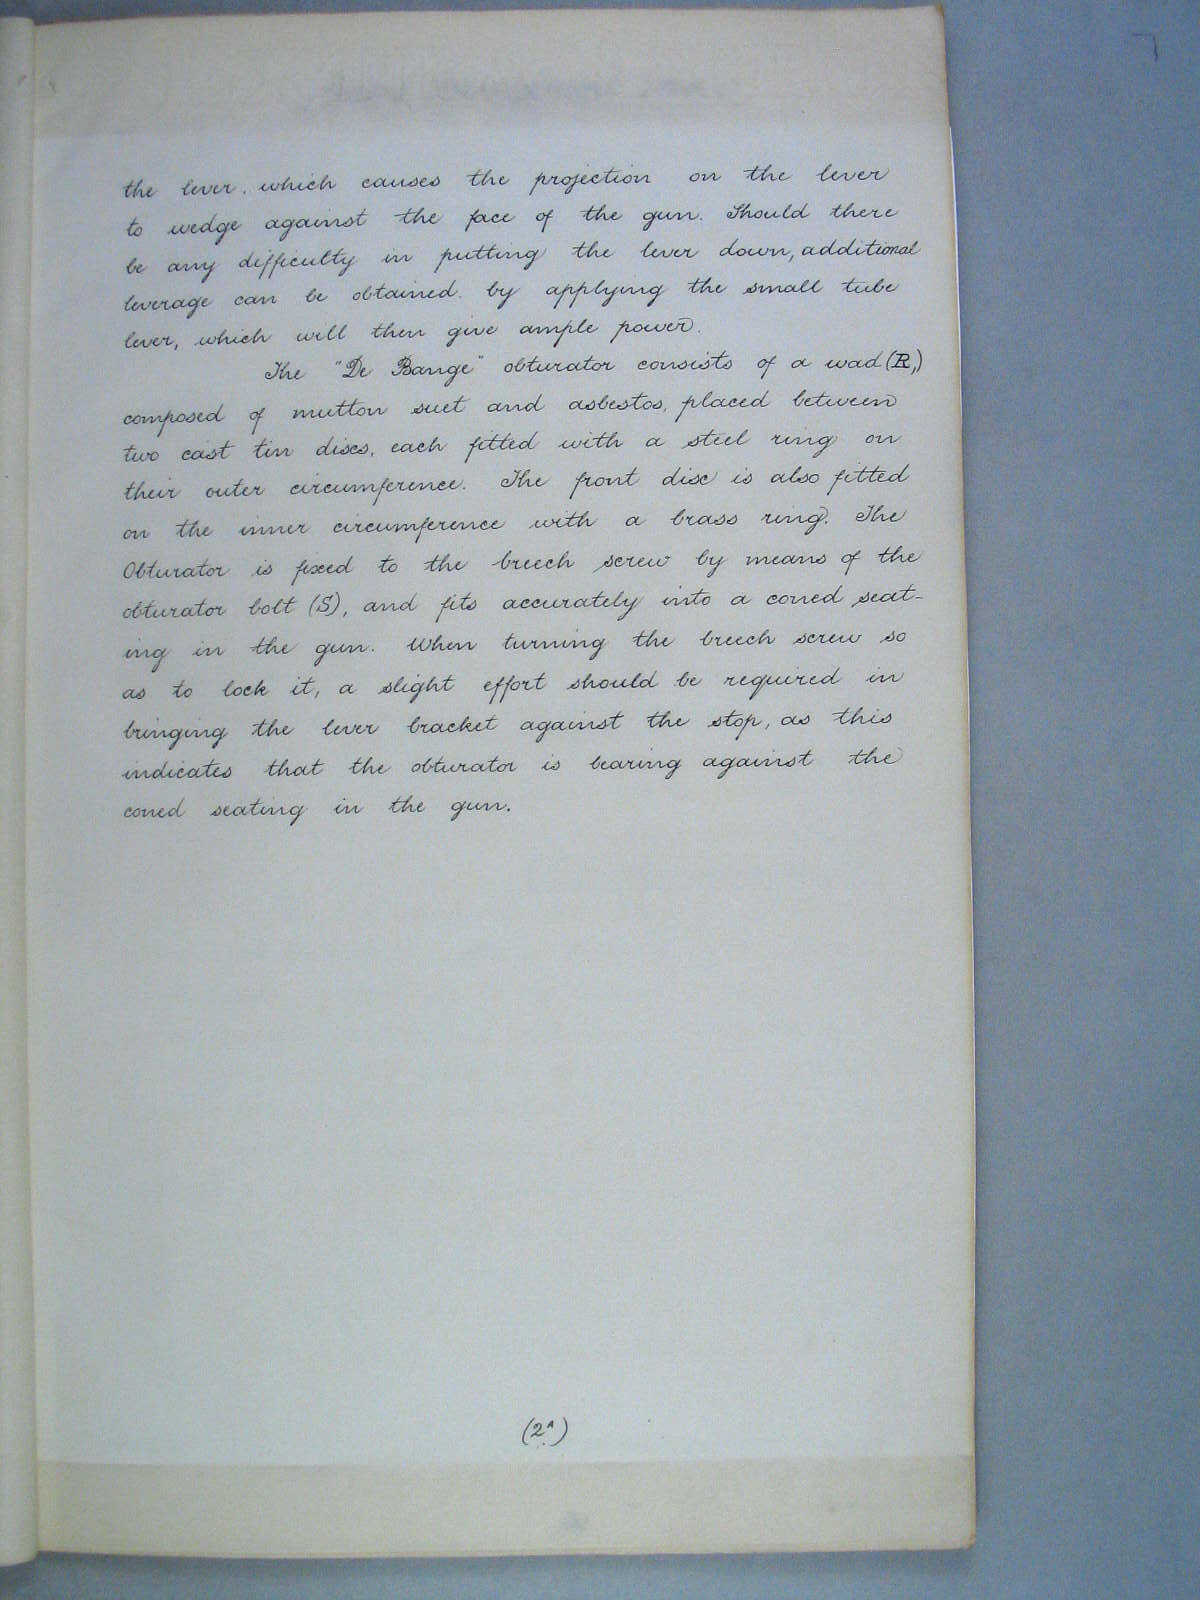 the lever. which causes the projection on the lever
to wedge against the face of the gun. Should there
be any difficulty in putting the lever down, additional
leverage can be obtained. by applying the small tube
lever, which will then give ample power.
The "De Bange" obturator consists of a wad (R,)
composed of mutton suet and asbestos, placed between
two cast tin discs, each fitted with a steel ring on
their outer circumference. The front disc is also fitted
on the inner circumference with a brass ring. The
Obturator is fixed to the breech screw by means of the
obturator bolt (S), and fits accurately into a coned seat-
ing in the gun. When turning the breech screw so
as to lock it, a slight effort should be required in
bringing the lever bracket against the stop, as this
indicates that the obturator is bearing against the
coned seating in the gun.
(2A)